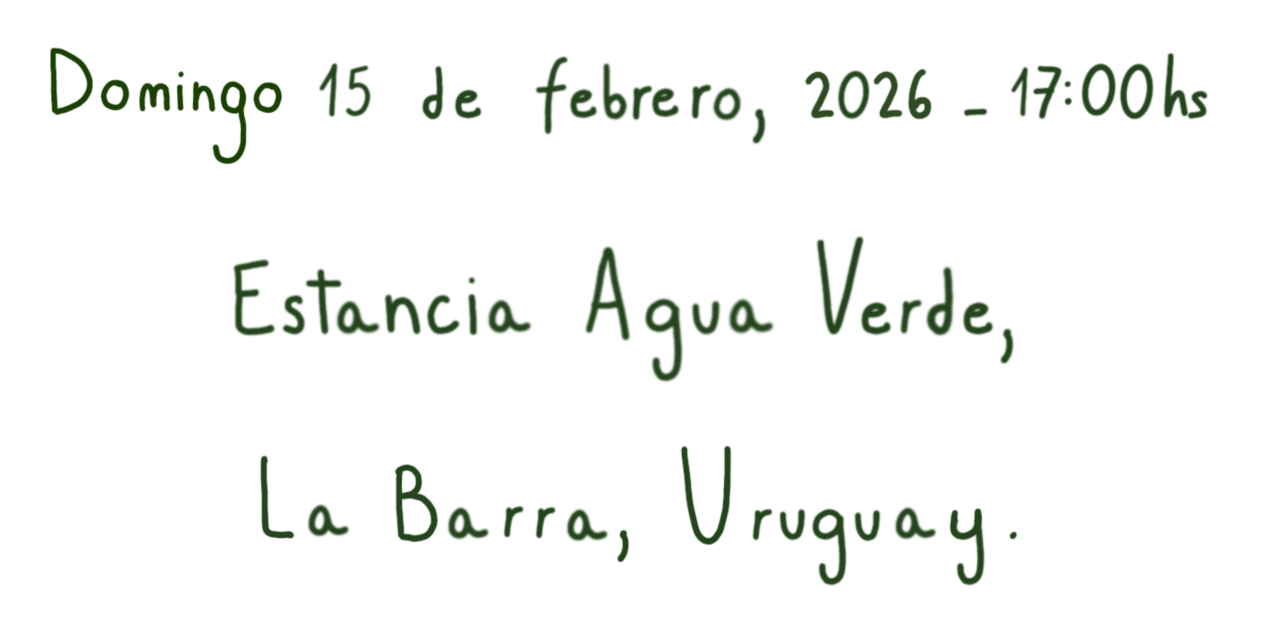 Domingo 15 de febrero, 2026 - 17:00hs
Estancia Agua Verde,
La Barra, Uruguay.